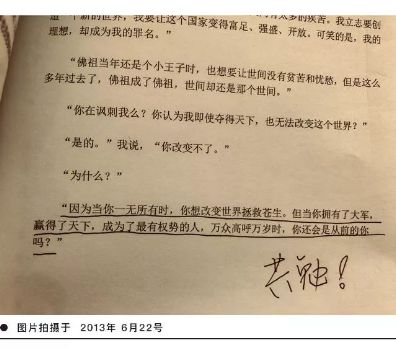 一个新的世界，我要让这个国家变得富足、强盛、开放。可笑的是，我的
理想，却成为我的罪名。”
“佛祖当年还是个小王子时，也想要让世间没有贫苦和忧愁，但是这么
多年过去了，佛祖成了佛祖，世间却还是那个世间。”
“你在讽刺我么？你认为我即使夺得天下，也无法改变这个世界？”
“是的。”我说，“你改变不了。”
“为什么？”
“因为当你一无所有时，你想改变世界拯救苍生。但当你拥有了大军，
赢得了天下，成为了最有权势的人，万众高呼万岁时，你还会是从前的你
吗？”
共勉！
● 图片拍摄于 2013年 6月22号